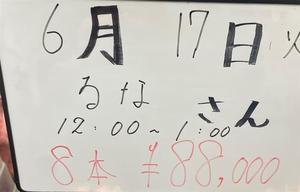 6月 17日 火
るな さん
12:00~1:00
8本 ¥88,000